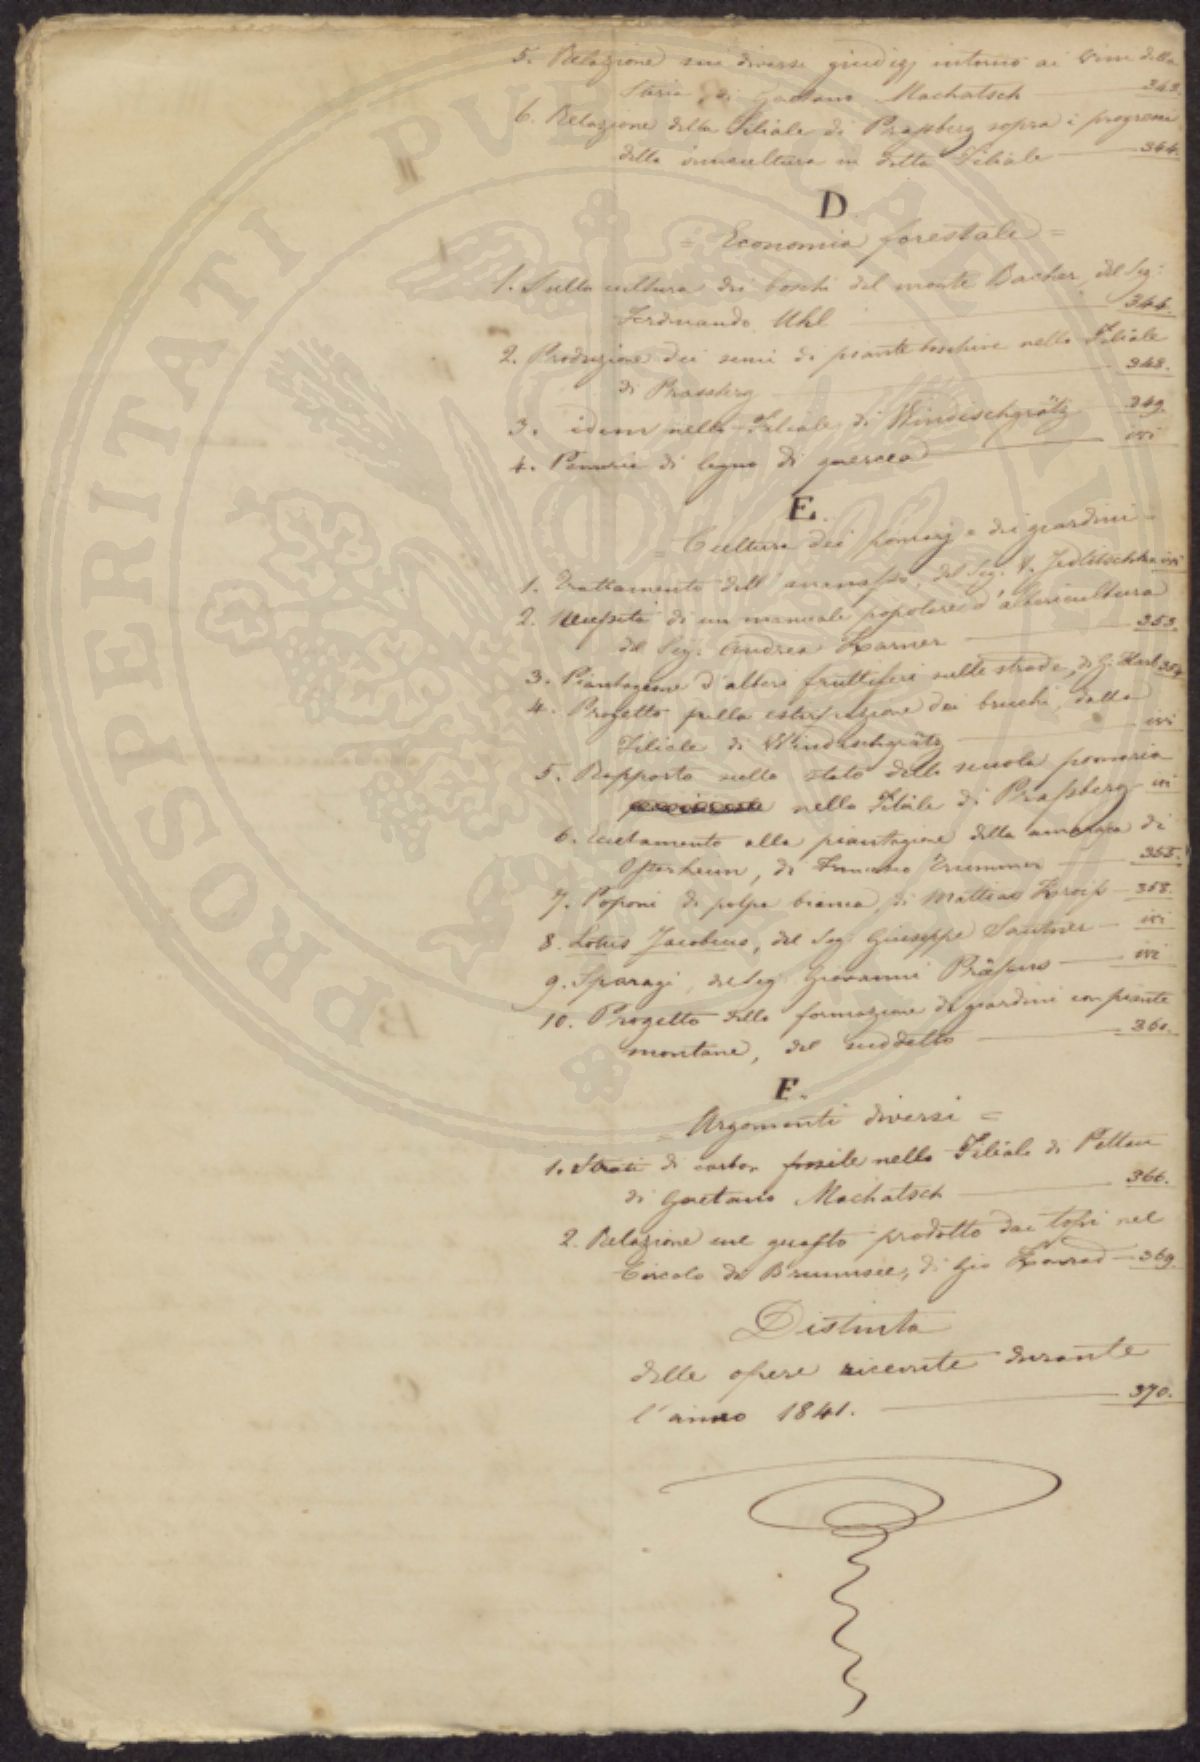 5. Relazione sui diversi giudizj intorno ai vini della
Stiria, di Gaetano Machatsch 343.
6. Relazione della Filiale di Prassberg sopra i progressi
della vinicultura in detta Filiale 344.
D.
= Economia forestale =
1. Sulla cultura dei boschi del monte Bacher, del Sig:
Ferdinando Uhl 344.
2. Produzione dei semi di piante boschive nella Filiale
di Prassberg 348.
3. idem nella Filiale di Windischgrätz 349.
4. Penuria di legno di quercia ivi
E.
= Cultura dei pomarj e dei giardini =
1. Trattamento dell' ananasso, del Sig. V. Jedlitschka ivi
2. Necessità di un manuale popolare d'albericultura
del Sig. Andrea Karner 353.
3. Piantagione d'alberi fruttiferi sulle strade, di G. Karl 354
4. Progetto pella estirpazione dei bruchi, dalla
Filiale di Windischgrätz ivi
5. Rapporto sullo stato della scuola pomaria
nella Filiale di Prassberg ivi
6. Eccitamento alla piantagione della amarasca di
Osterheim, di Francesco Trummer 355.
7. Poponi di polpa bianca, di Mattias Kroiss 358.
8. Lotus Jacobeus, del Sig. Giuseppe Sautner ivi
9. Sparagi, del Sig. Giovanni Präsens ivi
10. Progetto della formazione di giardini con piante
montane, del suddetto 360.
F.
= Argomenti diversi =
1. Strati di carbon fossile nella Filiale di Pettau
di Gaetano Machatsch 366.
2. Relazione sul guasto prodotto dai topi nel
Circolo di Brunnsee, di Gio Konrad 369.
Distinta
delle opere ricevute durante
l'anno 1841. 370.
PROSPERITATI PUBLICAE